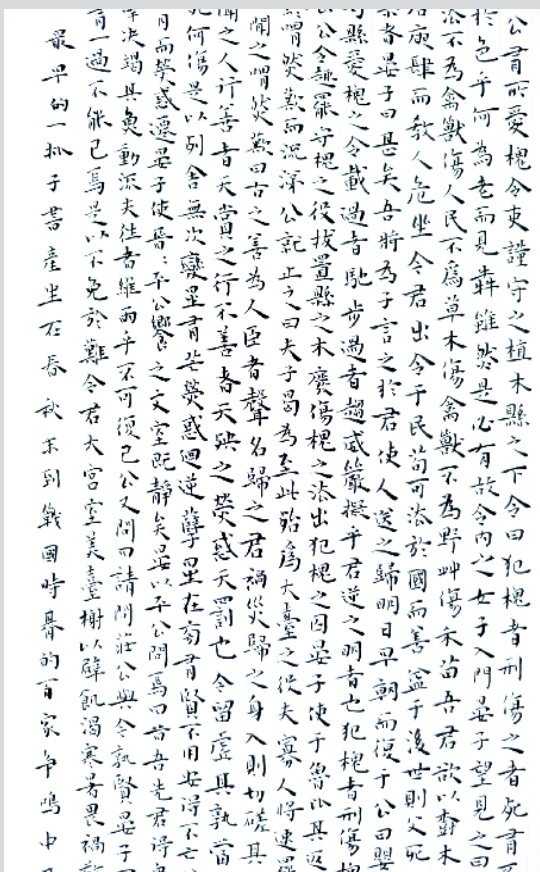 公有所愛槐令吏謹守之植木縣之下令曰犯槐者刑傷之者死有
於色乎何為老而見犇雖然是必有故令內之女子入門晏子望見之曰
法不為禽獸傷人民不為草木傷禽獸不為野艸傷禾苗吾君欲以樹木
肆而教人危坐今君出令于民苟可法於國而善益于後世則父死
者晏子曰甚矣吾將為子言之於君使人送之歸明日早朝而復于公曰嬰
縣愛槐之令載過者馳步過者趨威嚴擬乎君逆之明者也犯槐者刑傷槐
公令趣罷守槐之役拔置縣之木廢傷槐之法出犯槐之囚晏子使于魯比其返
喟然歎而流涕公就止之曰夫子曷為至此殆為大臺之役夫寡人將速罷
聞之喟然歎曰古之善為人臣者聲名歸之君禍災歸之身入則切磋其
聞之人行善者天賞之行不善者天殃之熒惑天罰也今留虛其孰當
何傷是以列舍無次變星有芒熒惑迴逆孽星在旁有賢不用安得不亡
月而熒惑遷晏子使晉：平公饗之文室既靜矣晏以平公問焉曰昔吾先君得
決竭其魚動流夫往者維雨乎不可復已公又問曰請問莊公與今孰賢晏子曰
有一過不能已焉是以不免於難今君大宮室美臺榭以辟飢渴寒暑畏禍敬
最早的一批子書產生在春秋末到戰國時朞的百家争鳴中